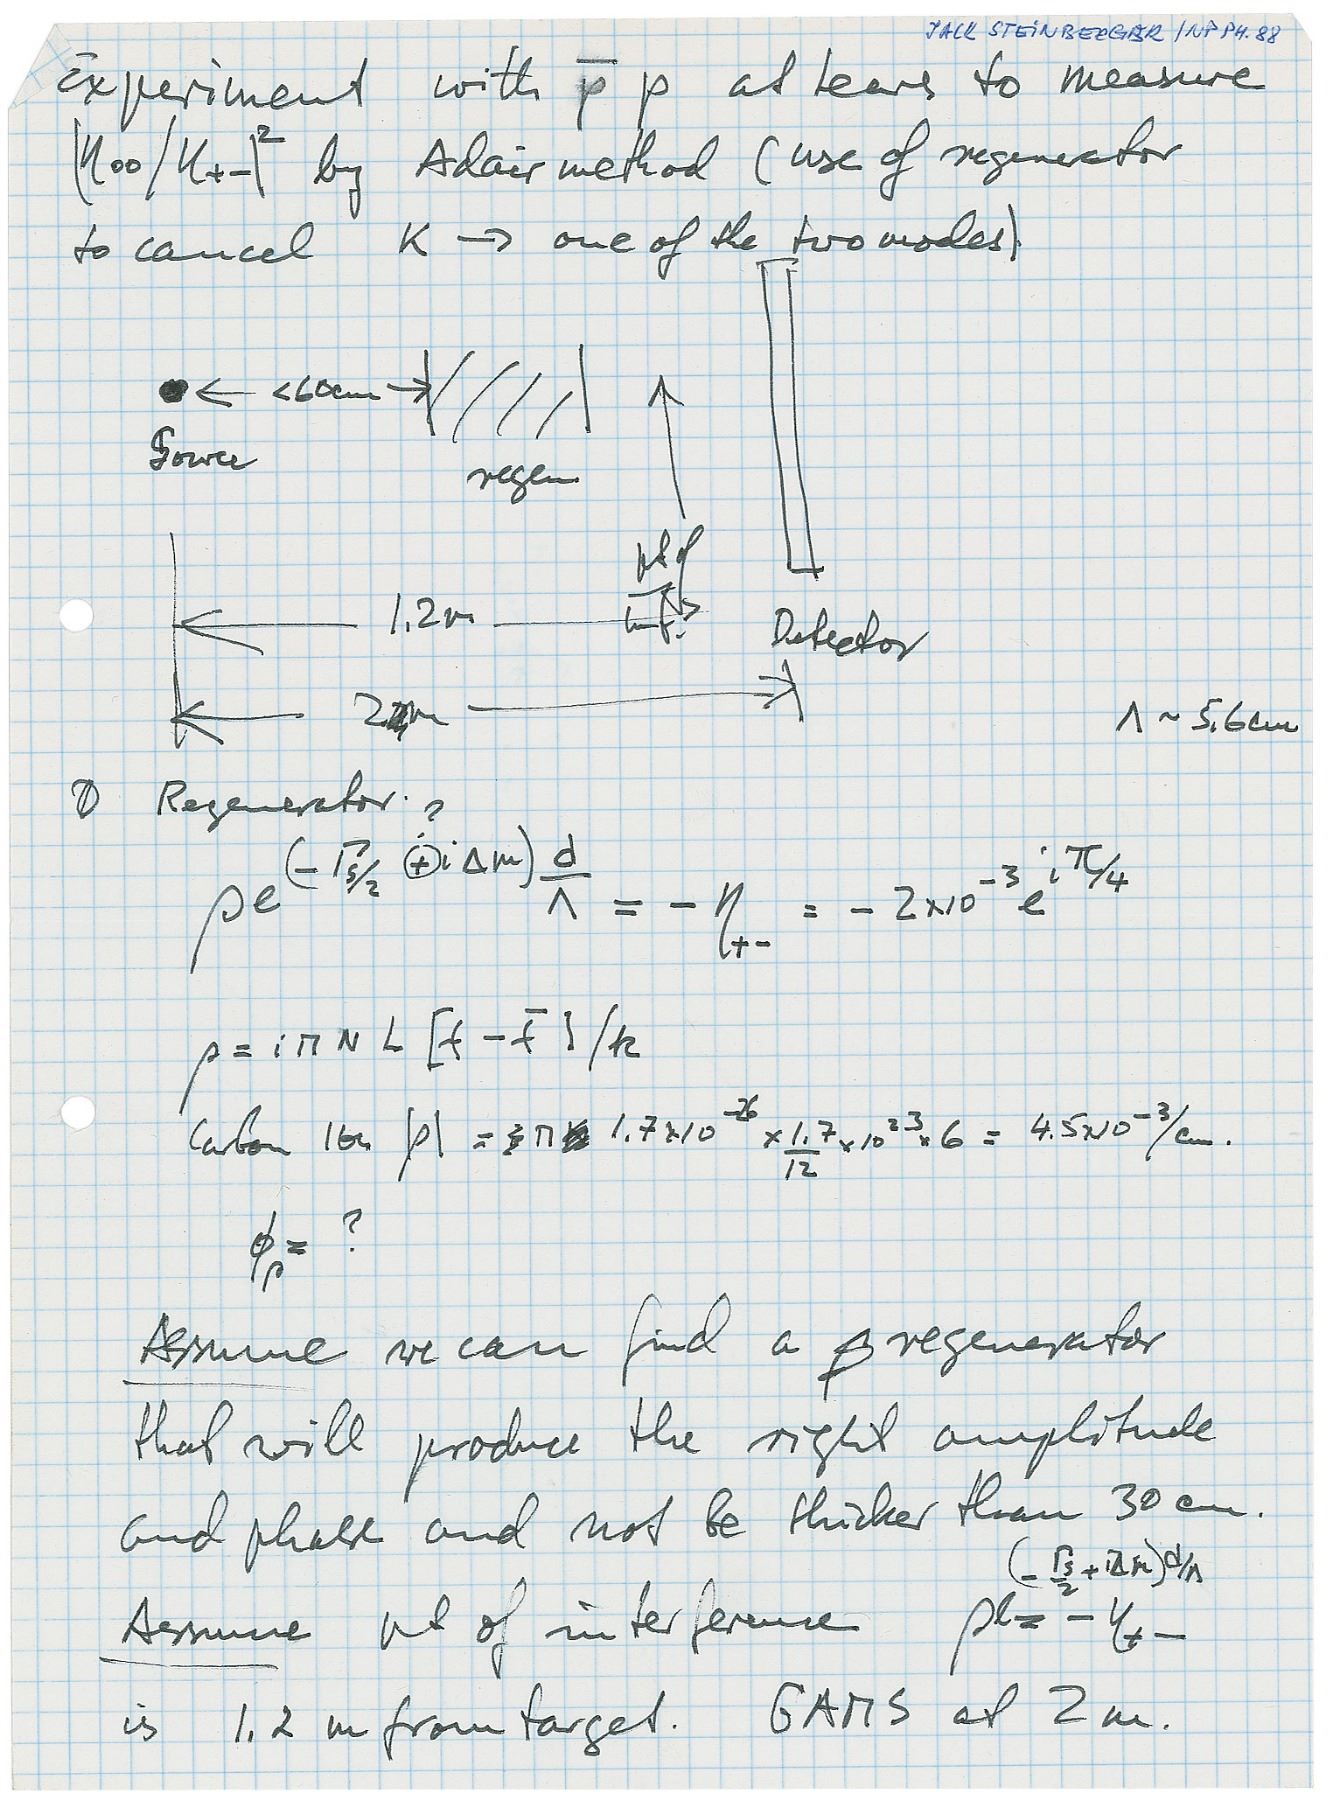 JACK STEINBERGER / NP PH. 88
Experiment with p̅ p at Lear to measure
|η00/η+-|² by Adair method (use of regenerator
to cancel K → one of the two modes)
<60cm
Source
regen
pt of
inf.
1.2m
Detector
2m
Λ ~ 5.6cm
① Regenerator. ?
ρe^(-Γs/2 + iΔm) d/Λ = - η+- = - 2×10^-3 e^iπ/4
ρ = iΠ N L [f - f̅] / k
Carbon |ρ| = Π 1.7×10^-26 × 1.7/12 × 10^23 × 6 = 4.5×10^-3/cm.
φρ = ?
Assume we can find a regenerator
that will produce the right amplitude
and phase and not be thicker than 30 cm.
Assume pt of interference ρe^(-Γs/2 + iΔm)d/Λ = - η+-
is 1.2 m from target. GAMS at 2 m.